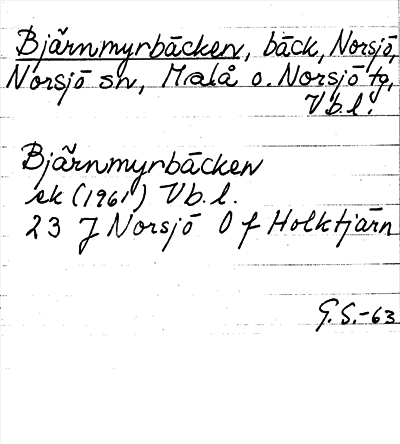 Bjärnmyrbäcken, bäck, Norsjö,
Norsjö sn, Malå o. Norsjö tg,
Vb.l.
Bjärnmyrbäcken
ek (1961) Vb.l.
23 J Norsjö O f Holktjärn
G.S.-63